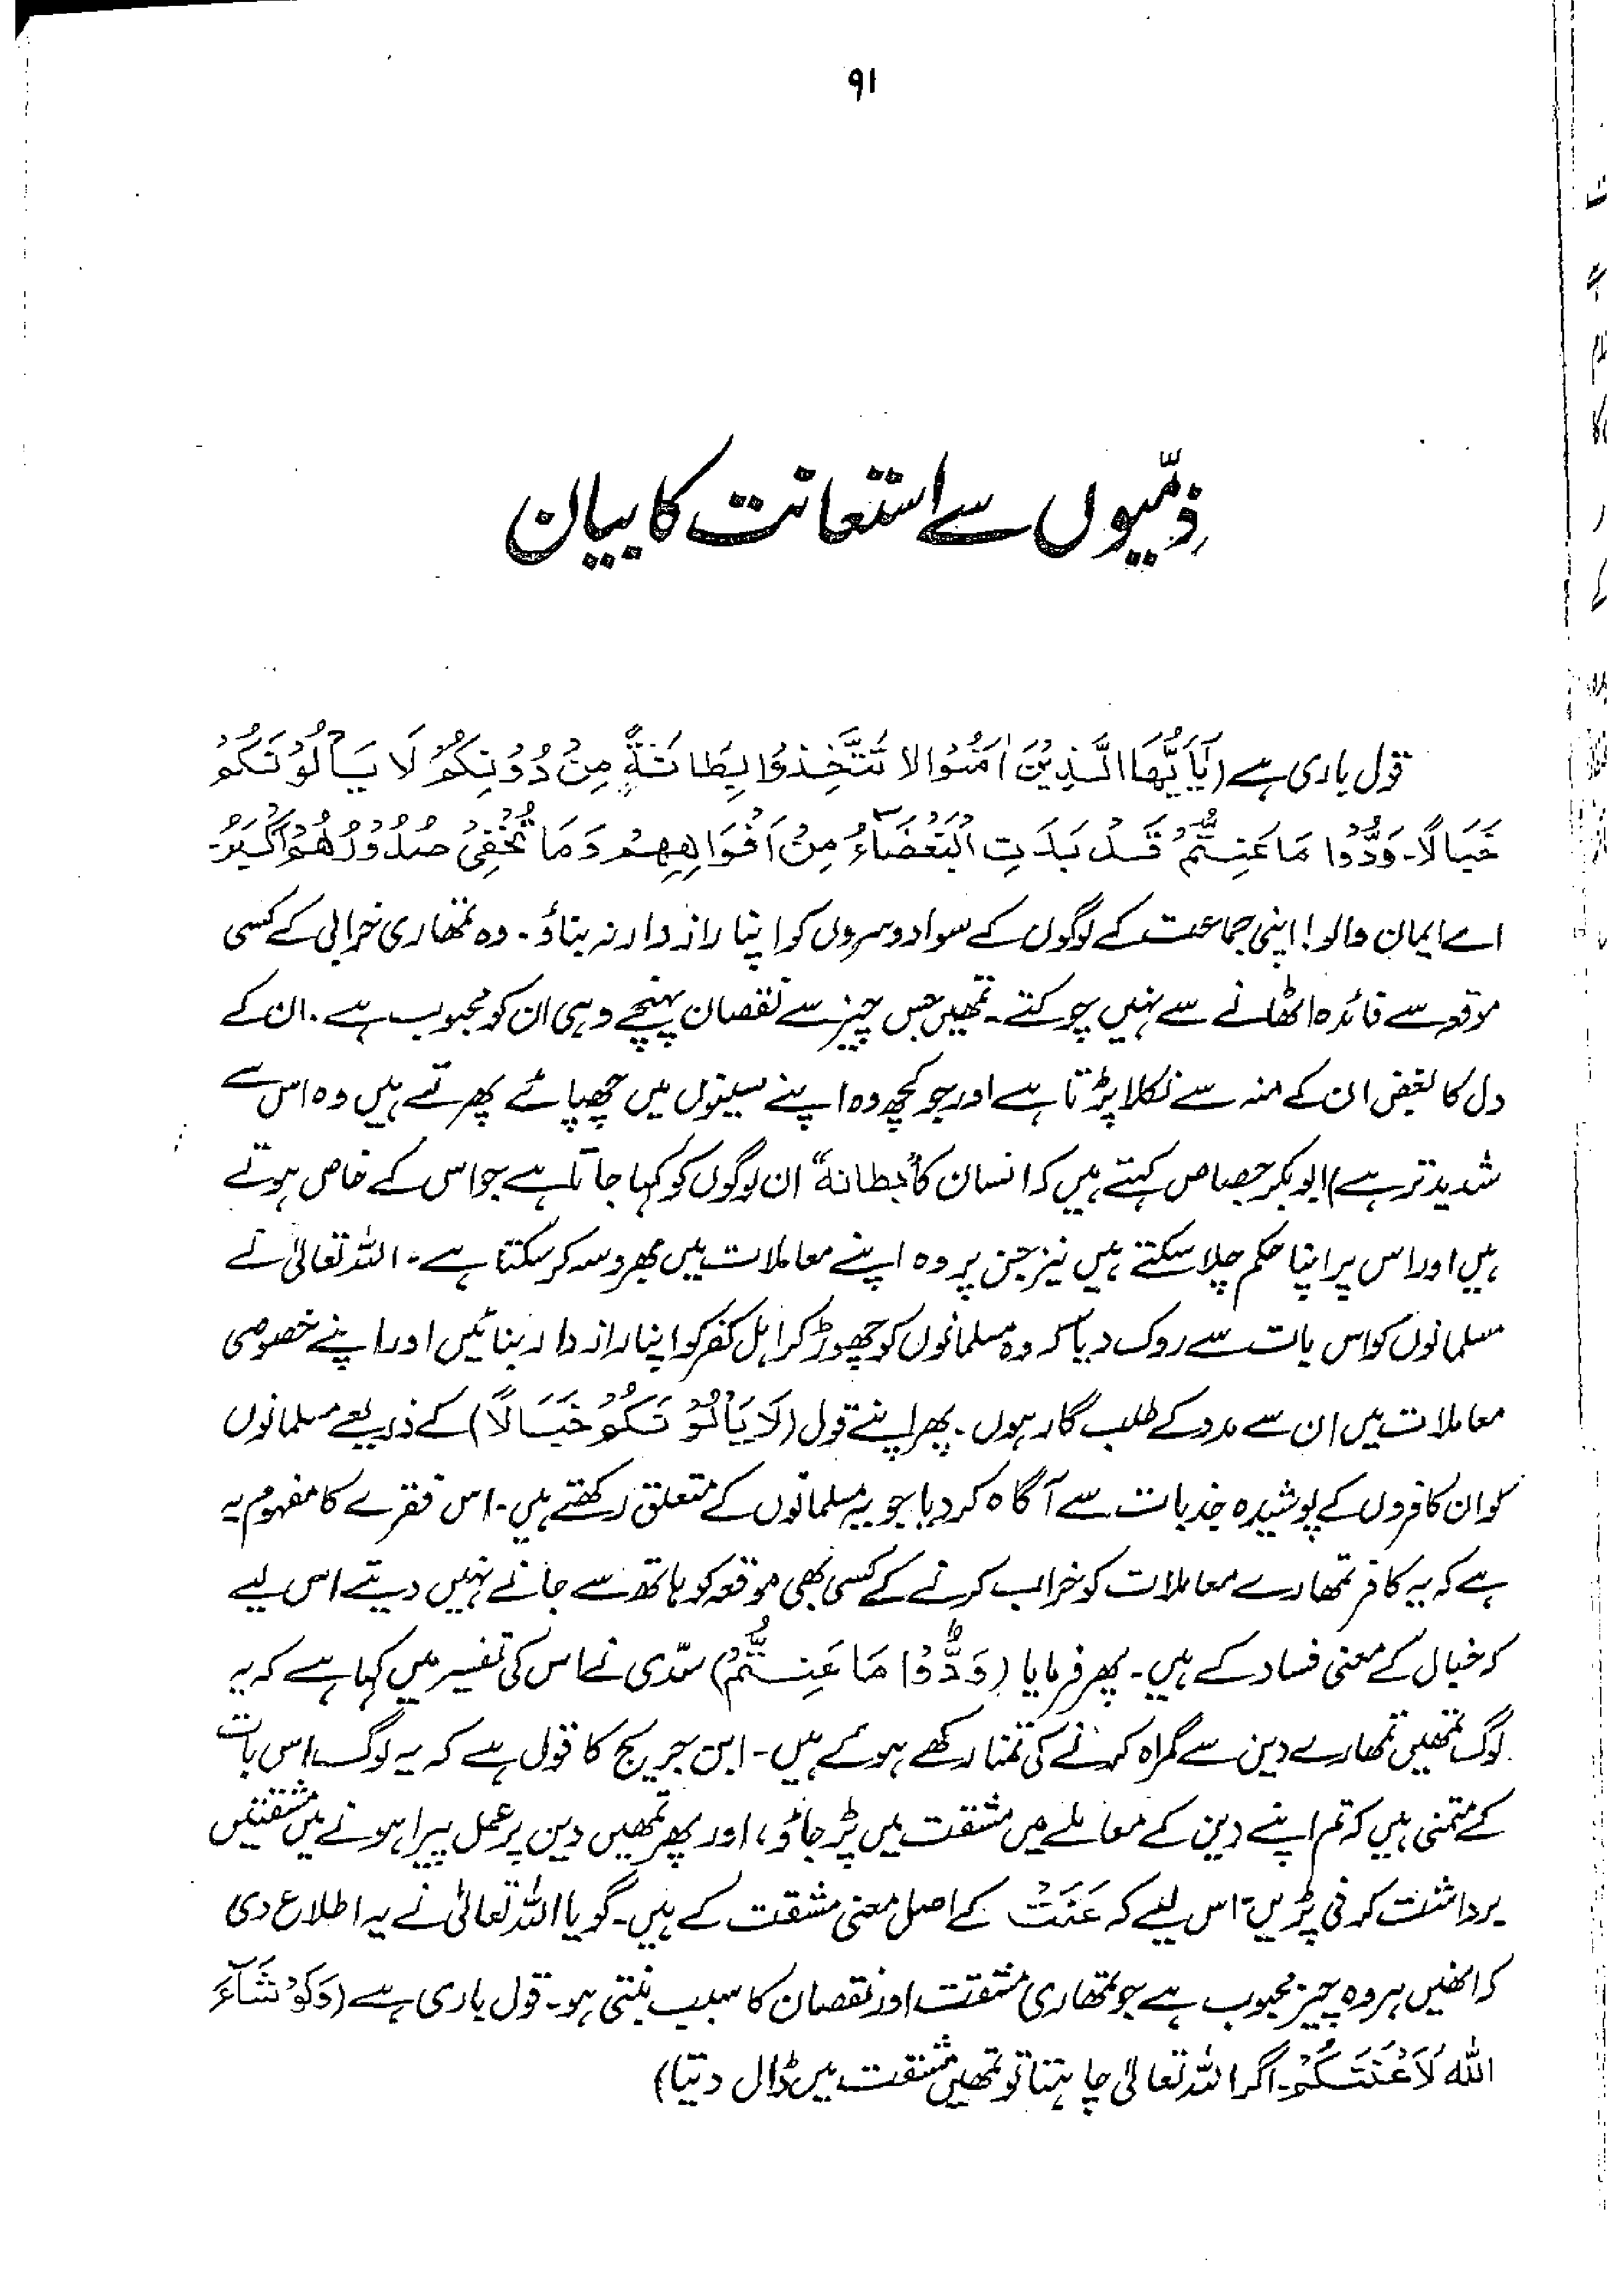 ۹۱
ذِمّیوں سے استعانت کا بیان
قول باری ہے (یٰۤاَیُّهَا الَّذِیْنَ اٰمَنُوْا لَا تَتَّخِذُوْا بِطَانَةً مِنْ دُوْنِكُمْ لَا یَأْلُوْنَكُمْ
خَبَالًا۔ وَدُّوْا مَا عَنِتُّمْ قَدْ بَدَتِ الْبَغْضَآءُ مِنْ اَفْوَاهِهِمْ وَمَا تُخْفِیْ صُدُوْرُهُمْ اَكْبَرُ۔
اے ایمان والو! اپنی جماعت کے لوگوں کے سوا دوسروں کو اپنا راز دار نہ بناؤ۔ وہ تمھاری خرابی کے کسی
موقعہ سے فائدہ اٹھانے سے نہیں چوکتے۔ تمھیں جس چیز سے نقصان پہنچے وہی ان کو محبوب ہے۔ ان کے
دل کا بغض ان کے منہ سے نکلا پڑتا ہے اور جو کچھ وہ اپنے سینوں میں چھپائے پھرتے ہیں وہ اس سے
شدید تر ہے) ابوبکر جصاص کہتے ہیں کہ انسان کا "بطانۃ" ان لوگوں کو کہا جاتا ہے جو اس کے خاص ہوتے
ہیں اور اس پر اپنا حکم چلا سکتے ہیں نیز جن پر وہ اپنے معاملات میں بھروسہ کر سکتا ہے۔ اللہ تعالیٰ نے
مسلمانوں کو اس بات سے روک دیا کہ وہ مسلمانوں کو چھوڑ کر اہل کفر کو اپنا راز دار بنائیں اور اپنے خصوصی
معاملات میں ان سے مدد کے طلب گار ہوں۔ پھر اپنے قول (لَا یَأْلُوْنَكُمْ خَبَالًا) کے ذریعے مسلمانوں
کو ان کافروں کے پوشیدہ جذبات سے آگاہ کر دیا جو یہ مسلمانوں کے متعلق رکھتے ہیں۔ اس فقرے کا مفہوم یہ
ہے کہ یہ کافر تمھارے معاملات کو خراب کرنے کے کسی بھی موقعہ کو ہاتھ سے جانے نہیں دیتے اس لیے
کہ خبال کے معنی فساد کے ہیں۔ پھر فرمایا (وَدُّوْا مَا عَنِتُّمْ) سدّی نے اس کی تفسیر میں کہا ہے کہ یہ
لوگ تمھیں تمھارے دین سے گمراہ کرنے کی تمنا رکھے ہوئے ہیں۔ ابن جریج کا قول ہے کہ یہ لوگ اس بات
کے متمنی ہیں کہ تم اپنے دین کے معاملے میں مشقت میں پڑ جاؤ، اور پھر تمھیں دین پر عمل پیرا ہونے میں مشقتیں
برداشت کرنی پڑیں" اس لیے کہ عَنَتْ کے اصل معنی مشقت کے ہیں۔ گویا اللہ تعالیٰ نے یہ اطلاع دی
کہ انھیں ہر وہ چیز محبوب ہے جو تمھاری مشقت اور نقصان کا سبب بنتی ہو۔ قول باری ہے (وَلَوْ شَآءَ
اللّٰهُ لَاَعْنَتَكُمْ۔ اگر اللہ تعالیٰ چاہتا تو تمھیں مشقت میں ڈال دیتا)